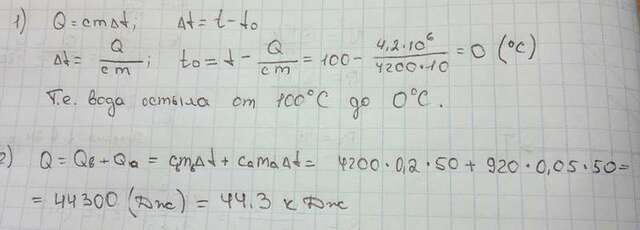 1) Q = cmΔt; Δt = t - t₀
Δt = Q/cm; t₀ = t - Q/cm = 100 - 4,2·10⁶/4200·10 = 0 (°C)
Т.е. вода остыла от 100°C до 0°C.
2) Q = Qв + Qа = cвmвΔt + cаmаΔt = 4200·0,2·50 + 920·0,05·50 =
= 44300 (Дж) = 44,3 кДж